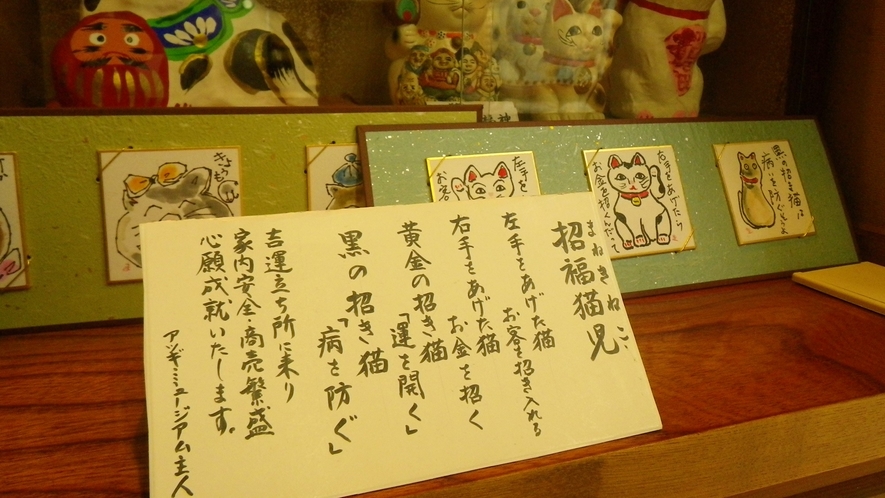 まねきねこ
招福猫児
左手をあげた猫
お客を招き入れる
右手をあげた猫
お金を招く
黄金の招き猫
「運を開く」
黒の招き猫
「病を防ぐ」
吉運立ち所に来り
家内安全・商売繁盛
心願成就いたします。
アツギミュージアム主人
きょうも
左手を
お客
右手をあげたら
お金を招くんだって
黒の招き猫は
病いを防ぐそうよ